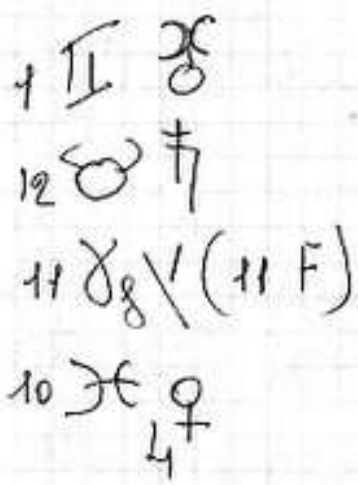 1 ♊ ♅
12 ♉ ♄
11 ♈ (11 F)
10 ♓ ♀ ♃